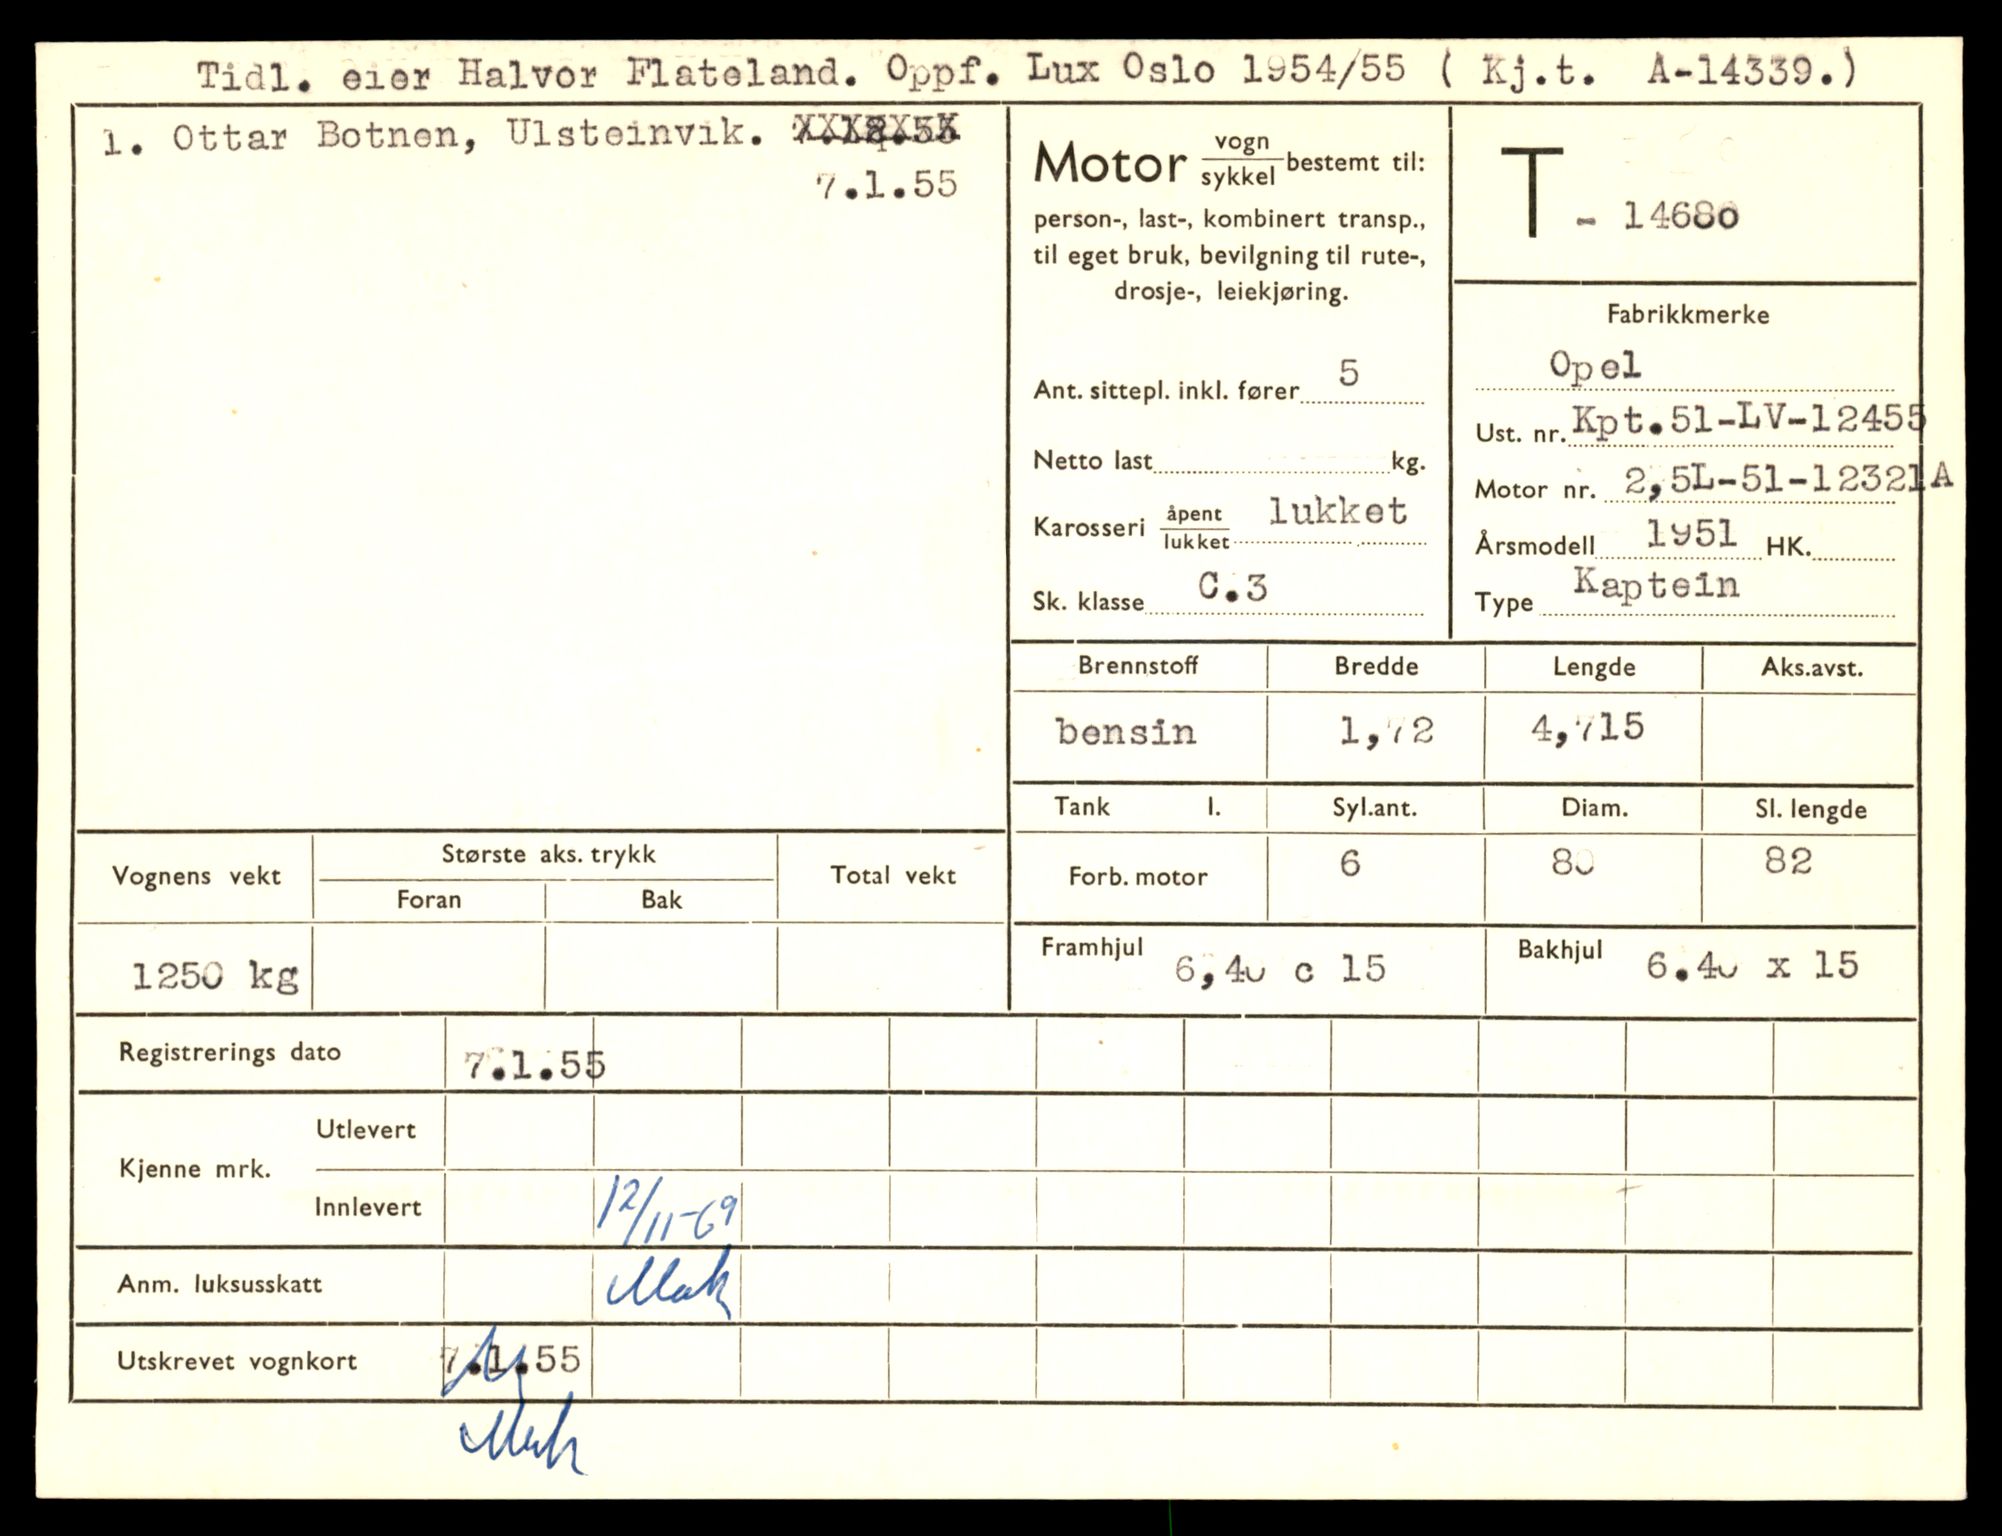 Tidl. eier Halvor Flateland. Oppf. Lux Oslo 1954/55 ( Kj.t. A-14339.)
1. Ottar Botnen, Ulsteinvik.
7.1.55
Motor vogn/sykkel bestemt til:
person-, last-, kombinert transp.,
til eget bruk, bevilgning til rute-,
drosje-, leiekjøring.
Ant. sittepl. inkl. fører 5
Netto last kg.
Karosseri åpent/lukket lukket
Sk. klasse C.3
T - 14680
Fabrikkmerke
Opel
Ust. nr. Kpt.51-LV-12455
Motor nr. 2,5L-51-12321A
Årsmodell 1951 HK.
Type Kaptein
Brennstoff Bredde Lengde Aks.avst.
bensin 1,72 4,715
Tank l. Syl.ant. Diam. Sl. lengde
Forb. motor 6 80 82
Framhjul 6,40 c 15 Bakhjul 6.40 x 15
Vognens vekt Største aks. trykk Total vekt
Foran Bak
1250 kg
Registrerings dato 7.1.55
Kjenne mrk. Utlevert
Innlevert 12/11-69
Anm. luksusskatt
Utskrevet vognkort 7.1.55